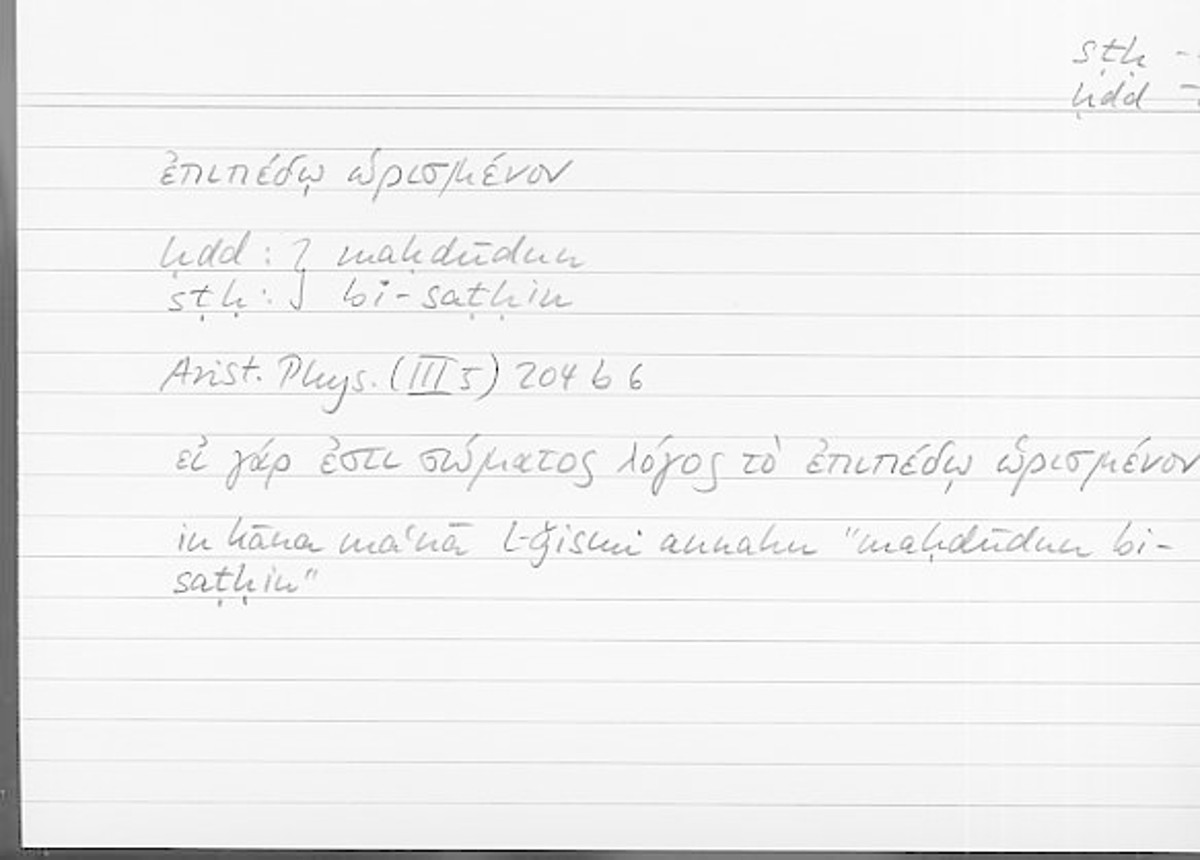 sṭḥ -
ḥdd -
ἐπιπέδῳ ὡρισμένον
ḥdd : } maḥdūdun
sṭḥ : } bi-saṭḥin
Arist. Phys. (III 5) 204 b 6
εἰ γάρ ἐστι σώματος λόγος τὸ ἐπιπέδῳ ὡρισμένον
in kāna maʿnā l-ǧismi annahu "maḥdūdun bi-
saṭḥin"